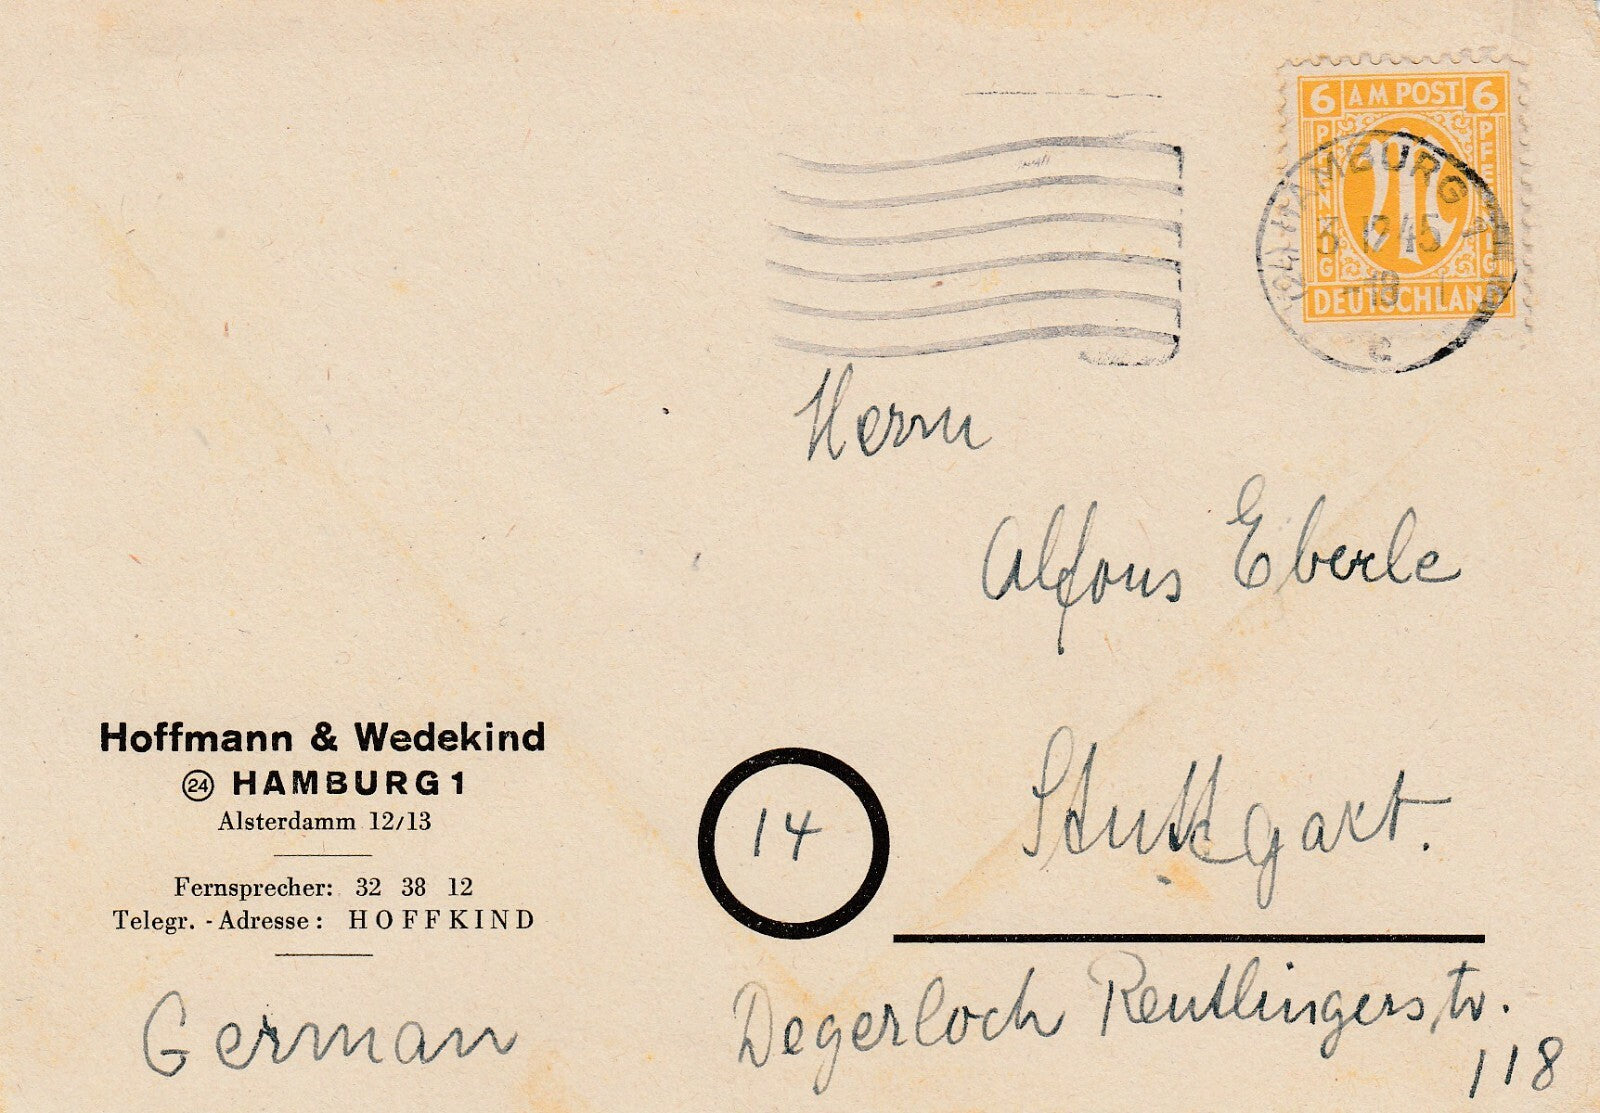 6 AM POST 6
PFENNIG PFENNIG
DEUTSCHLAND
(24) HAMBURG 1
3 12 45
-18
c
Herrn
Alfons Eberle
Stuttgart.
14
Degerloch Reutlingerstr.
118
Hoffmann & Wedekind
24 HAMBURG 1
Alsterdamm 12/13
Fernsprecher: 32 38 12
Telegr. - Adresse: HOFFKIND
German